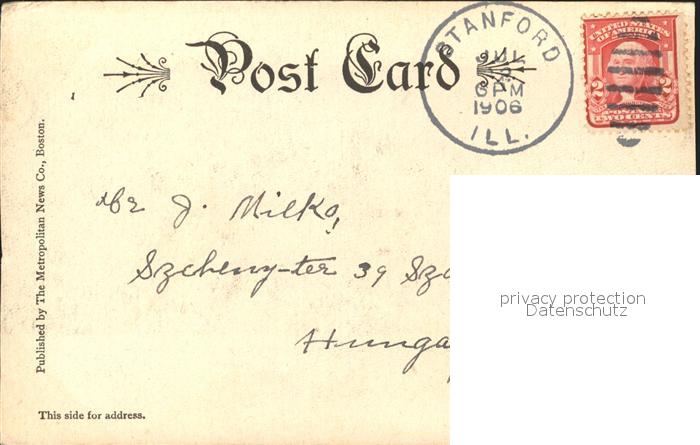 Post Card
STANFORD
JUL
6PM
1906
ILL.
UNITED STATES
OF AMERICA
2 2
TWO CENTS
J. Milko,
Szcheny-ter 39 Sz
Hunga
privacy protection
Datenschutz
Published by The Metropolitan News Co., Boston.
This side for address.